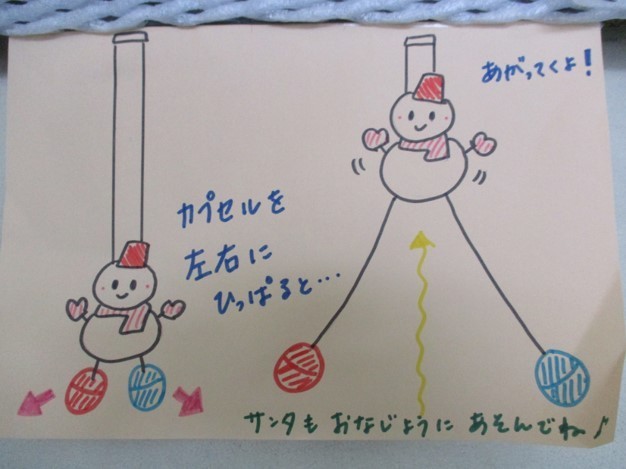 カプセルを
左右に
ひっぱると…
あがってくよ!
サンタもおなじようにあそんでね♪